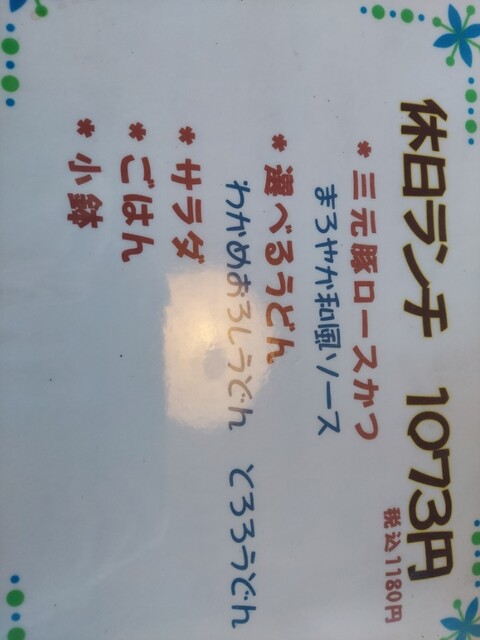 休日ランチ 1073円
税込1180円
* 三元豚ロースかつ
まろやか和風ソース
* 選べるうどん
わかめおろしうどん とろろうどん
* サラダ
* ごはん
* 小鉢